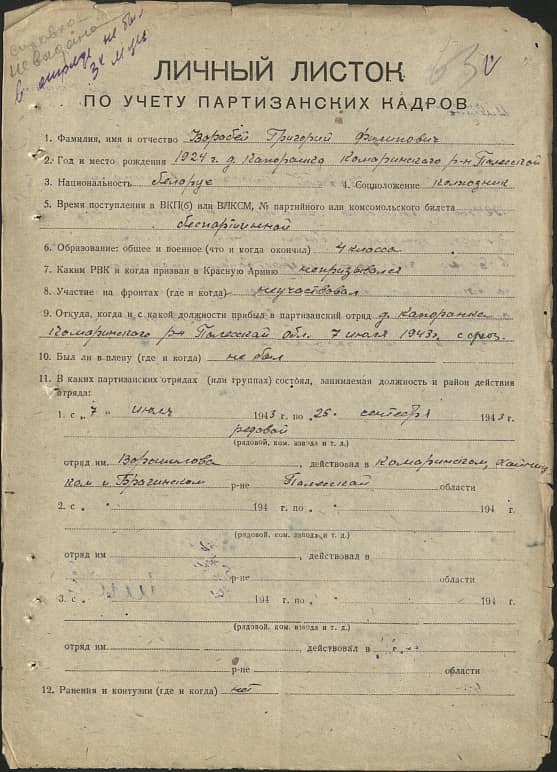 справка
не выдана
в отряде не был
3х м-цев
ЛИЧНЫЙ ЛИСТОК
ПО УЧЕТУ ПАРТИЗАНСКИХ КАДРОВ
1. Фамилия, имя и отчество Воробей Григорий Филипович
2. Год и место рождения 1924 г. д. Капоранка Комаринского р-н Полесской
3. Национальность белорус 4. Соцположение колхозник
5. Время поступления в ВКП(б) или ВЛКСМ, № партийного или комсомольского билета
беспартийной
6. Образование: общее и военное (что и когда окончил) 4 класса
7. Каким РВК и когда призван в Красную Армию непризывался
8. Участие на фронтах (где и когда) неучаствовал
9. Откуда, когда и с какой должности прибыл в партизанский отряд д. Капоранка
Комаринского р-н Полесской обл. 7 июля 1943 г.
10. Был ли в плену (где и когда) не был
11. В каких партизанских отрядах (или группах) состоял, занимаемая должность и район действия
отряда:
1. с „ 7 „ июля 1943 г. по 25 сентября 1943 г.
редовой
(рядовой, ком. взвода и т. д.)
отряд им Ворошилова, действовал в Комаринском, Хойниц
ком и Брагинском р-не Полесской области
2. с „ 194 г. по „ 194 г.
(рядовой, ком. взвода и т. д.)
отряд им , действовал в
р-не области
3. с „ 194 г. по „ 194 г.
(рядовой, ком. взвода и т. д.)
отряд им. , действовал в
р-не области
12. Ранения и контузии (где и когда) нет